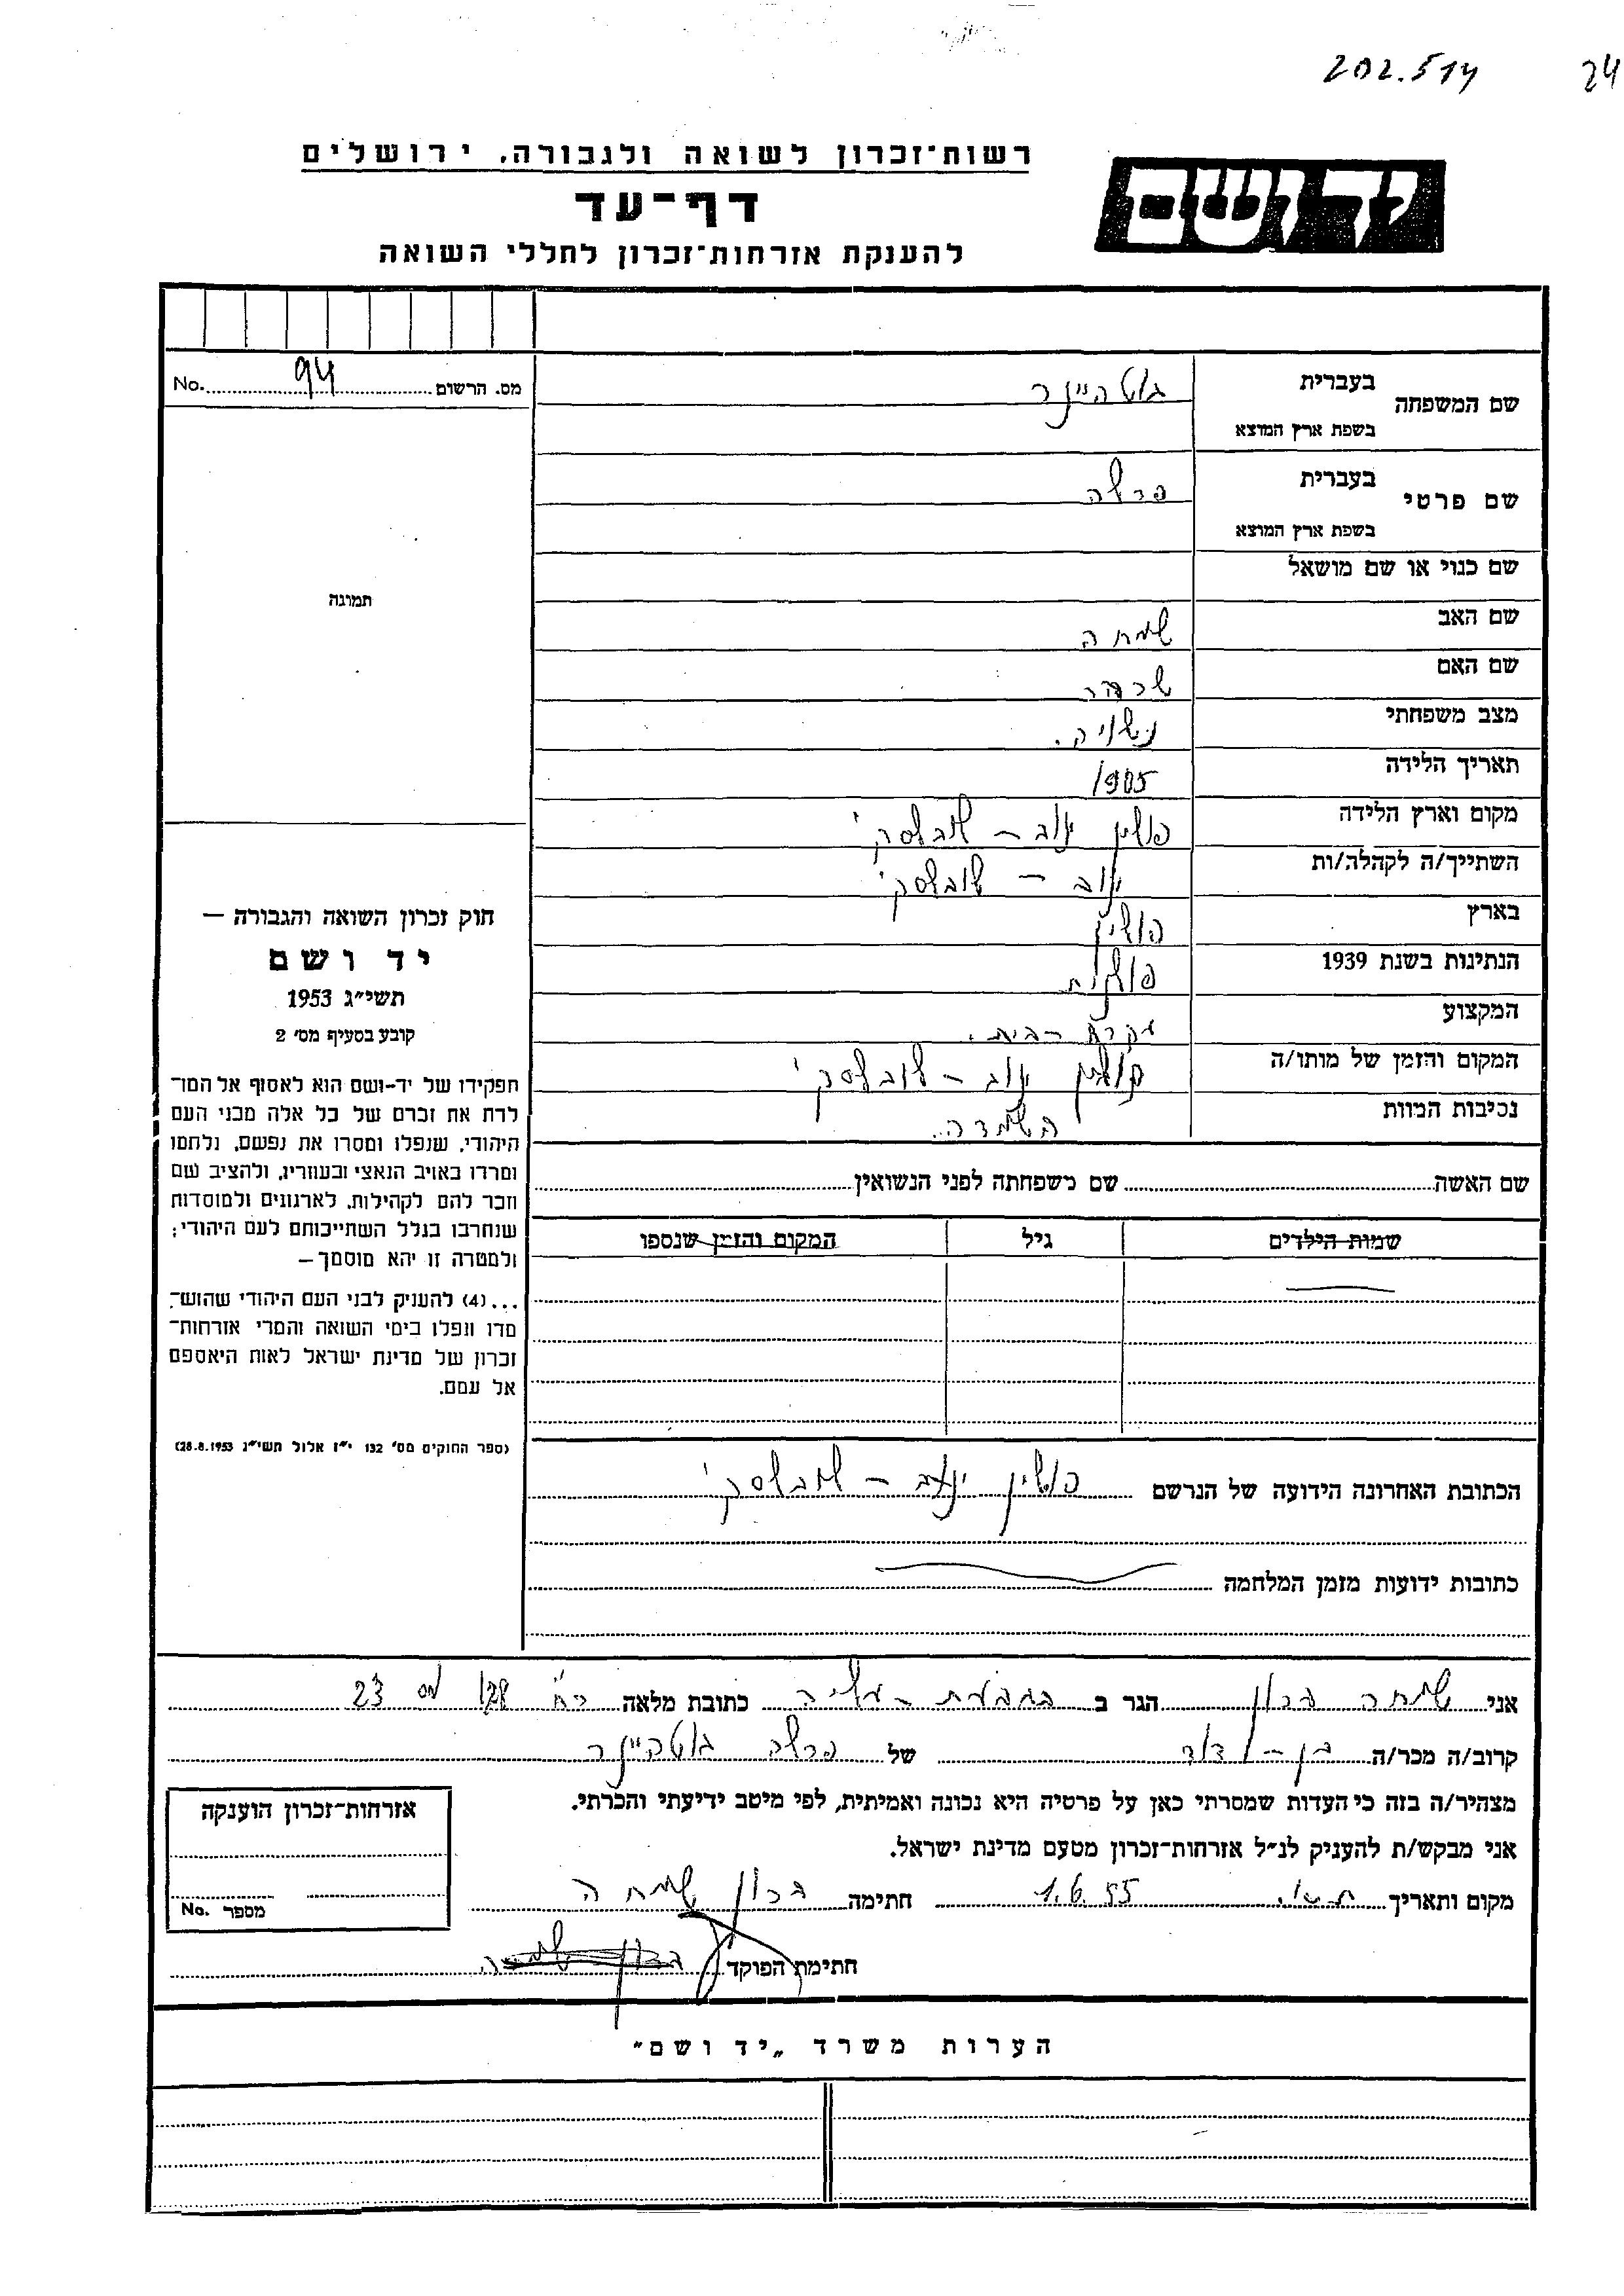 202.514 24
רשות־זכרון לשואה ולגבורה, ירושלים
יד ושם
דף־עד
להענקת אזרחות־זכרון לחללי השואה
מס. הרשום 94 No.
שם המשפחה בעברית גוטהיינר
בשפת ארץ המוצא
שם פרטי בעברית פרלה
בשפת ארץ המוצא
שם כנוי או שם מושאל
תמונה
שם האב שמחה
שם האם
מצב משפחתי נשויה.
תאריך הלידה 1905
מקום וארץ הלידה פולין ינוב - לובלסקי
השתייך/ה לקהלה/ות ינוב - לובלסקי
בארץ פולין
הנתינות בשנת 1939 פולנית
המקצוע עקרת - בית.
המקום והזמן של מותו/ה פולין ינוב - לובלסקי
נסיבות המוות השמדה..
חוק זכרון השואה והגבורה —
יד ושם
תשי״ג 1953
קובע בסעיף מס׳ 2
תפקידו של יד-ושם הוא לאסוף אל המו־
לדת את זכרם של כל אלה מבני העם
היהודי, שנפלו ומסרו את נפשם, נלחמו
ומרדו באויב הנאצי ובעוזריו, ולהציב שם
וזכר להם לקהילות, לארגונים ולמוסדות
שנחרבו בגלל השתייכותם לעם היהודי;
ולמטרה זו יהא מוסמך —
...(4) להעניק לבני העם היהודי שהוש־
מדו ונפלו בימי השואה והמרי אזרחות־
זכרון של מדינת ישראל לאות היאספם
אל עמם.
(ספר החוקים מס׳ 132 י״ז אלול תשי״ג 28.8.1953)
שם האשה שם משפחתה לפני הנשואין
שמות הילדים גיל המקום והזמן שנספו
הכתובת האחרונה הידועה של הנרשם פולין ינוב - לובלסקי
כתובות ידועות מזמן המלחמה
אני שמחה ברון הגר ב בגבעת - עליה כתובת מלאה רח' 128 מס 23
קרוב/ה מכר/ה בן - דוד של פרלה גוטהיינר
מצהיר/ה בזה כי העדות שמסרתי כאן על פרטיה היא נכונה ואמיתית, לפי מיטב ידיעתי והכרתי.
אני מבקש/ת להעניק לנ״ל אזרחות־זכרון מטעם מדינת ישראל.
מקום ותאריך 1.6.55 חתימה ברון שמחה
חתימת הפוקד ברון שמחה
אזרחות־זכרון הוענקה
מספר No.
הערות משרד „יד ושם"